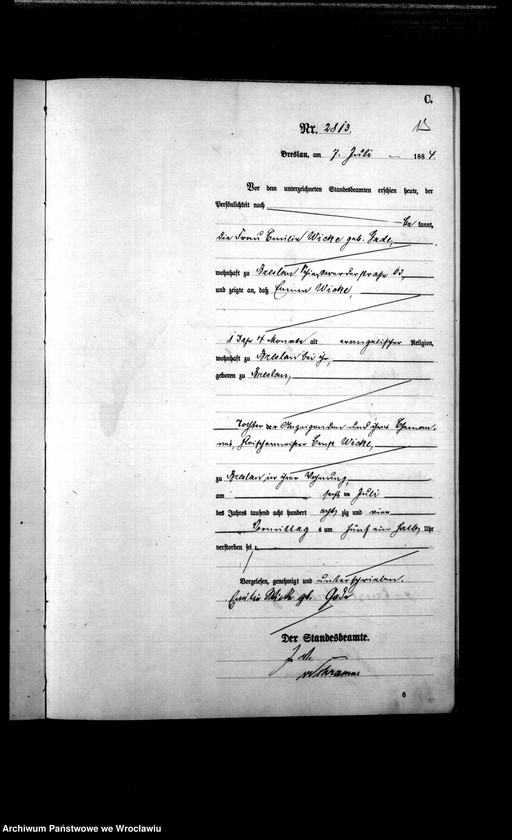 C.
Nr. 2813.
Breslau, am 7. Juli 1884.
Vor dem unterzeichneten Standesbeamten erschien heute, der
Persönlichkeit nach
be kannt,
die Frau Emilie Wicke geb. Gade,
wohnhaft zu Breslau Schießwerderstraße 63,
und zeigte an, daß Emma Wicke,
1 Jahr 4 Monate alt evangelischer Religion,
wohnhaft zu Breslau bei ihr,
geboren zu Breslau,
Tochter der Anzeigenden und ihres Eheman-
nes, Fleischermeister Wicke,
zu Breslau in ihrer Wohnung,
am sechsten Juli
des Jahres tausend acht hundert achtzig und vier
Vormittag s um fünf ein halb Uhr
verstorben sei.
Vorgelesen, genehmigt und unterschrieben.
Emilie Wicke gb. Gade
Der Standesbeamte.
6
Archiwum Państwowe we Wrocławiu